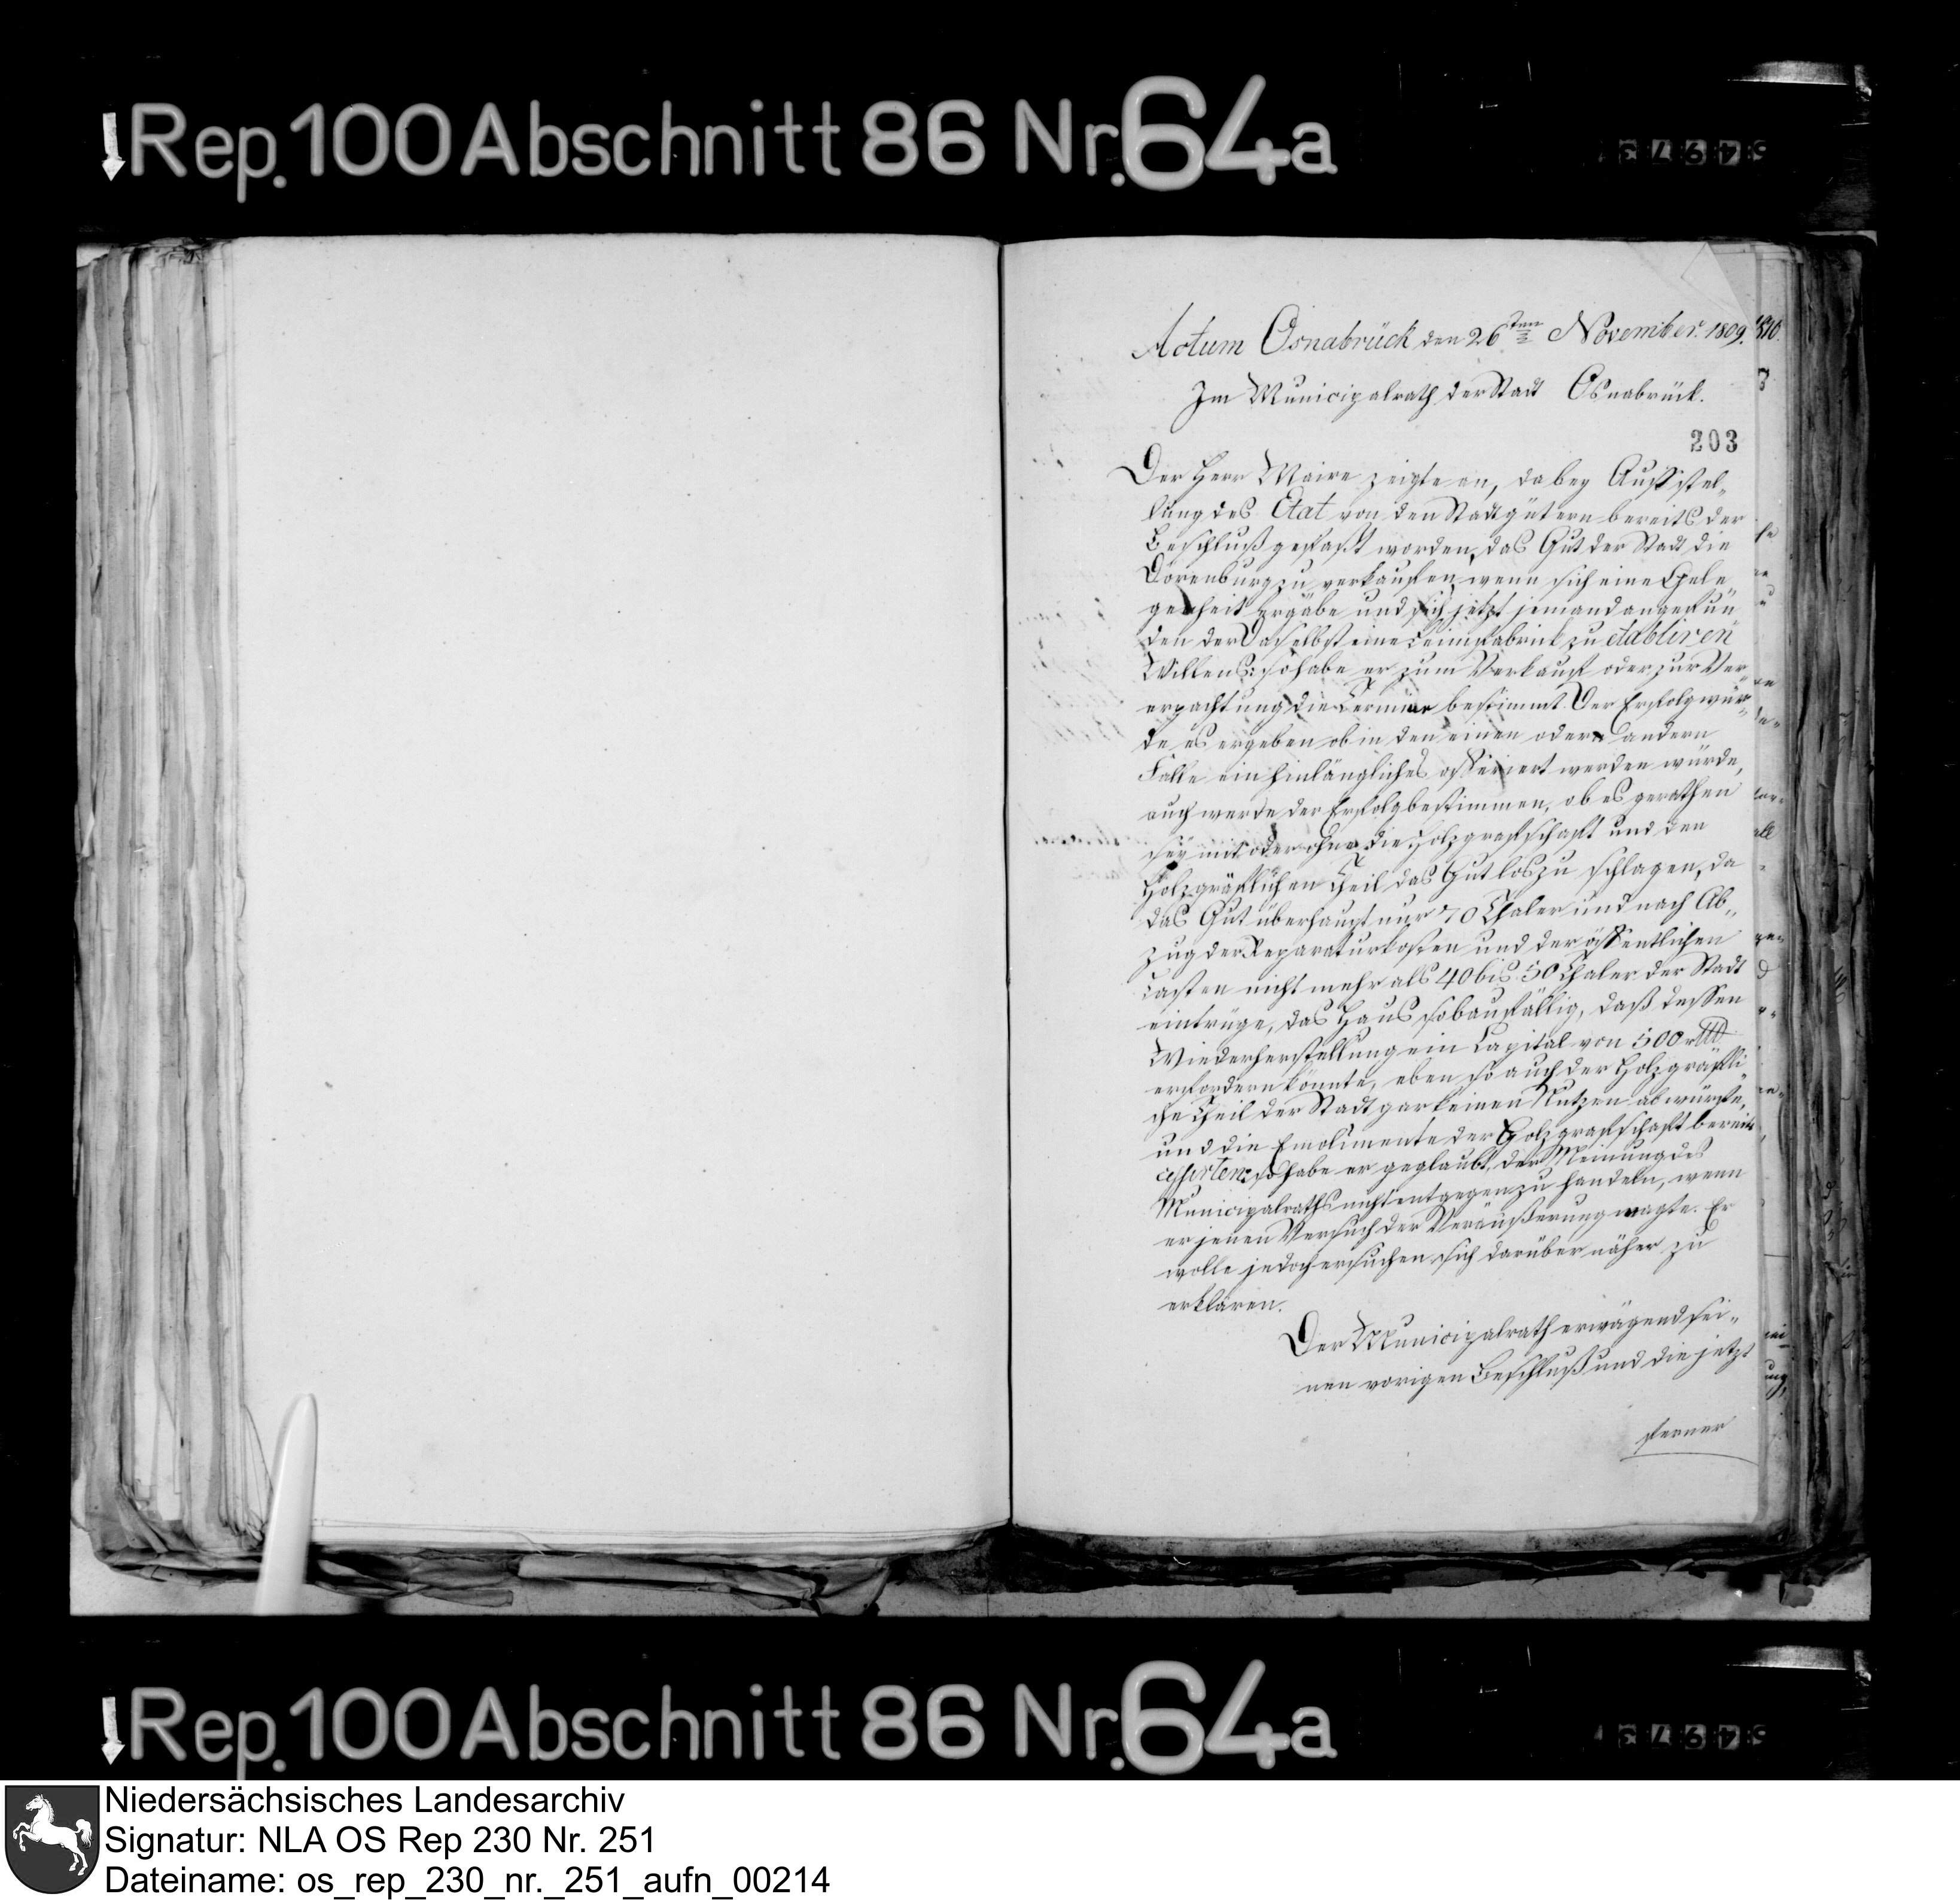 Rep. 100 Abschnitt 86 Nr. 64a
Actum Osnabrück den 26ten November. 1809.
Im Municipalrath der Stadt Osnabrück.
203
Der Herr Maire zeigte an, da bey Aufstel„
lung des Etat von den Stadtgütern bereits der
Beschluß gefaßt worden, das Gut der Stadt die
Dörenburg zu verkaufen, wenn sich eine Gele
genheit ergäbe und sich jetzt jemand angefun
den der daselbst eine Leimfabrick zu etabliren
Willens: so habe er zum Verkauf oder zur Ver„
erpachtung die Termine bestimmt. Der Erfolg wür„
de es ergeben ob in den einen oder andern
Falle ein hinlängliches offeriert werden würde,
auch werde der Erfolg bestimmen, ob es gerathen
sey mit oder ohne die Holzgrafschaft und den
Holzgräflichen Theil das Gut loszu schlagen, da
das Gut überhaupt nur 70 Thaler und nach Ab„
zug der Reparaturkosten und der öffentlichen
Lasten nicht mehr als 40 bis 50 Thaler der Stadt
eintrüge, das Haus so baufällig, daß dessen
Wiederherstellung ein Capital von 500
erfordern könnte, eben so auch der Holzgräfli„
che Theil der Stadt gar keinen Nutzen abwürfe,
und die Emolumente der Holzgrafschaft bereits
cessirten: so habe er geglaubt, der Meinung des
Municipalraths nicht entgegen zu handeln, wenn
er jenen Versuch der Veräußerung wagte. Er
wolle jedoch ersuchen sich darüber näher zu
erklären.
Der Municipalrath erwägend sei„
nen vorigen Beschluß und die jetzt
ferner
Rep. 100 Abschnitt 86 Nr. 64a
Niedersächsisches Landesarchiv
Signatur: NLA OS Rep 230 Nr. 251
Dateiname: os_rep_230_nr._251_aufn_00214